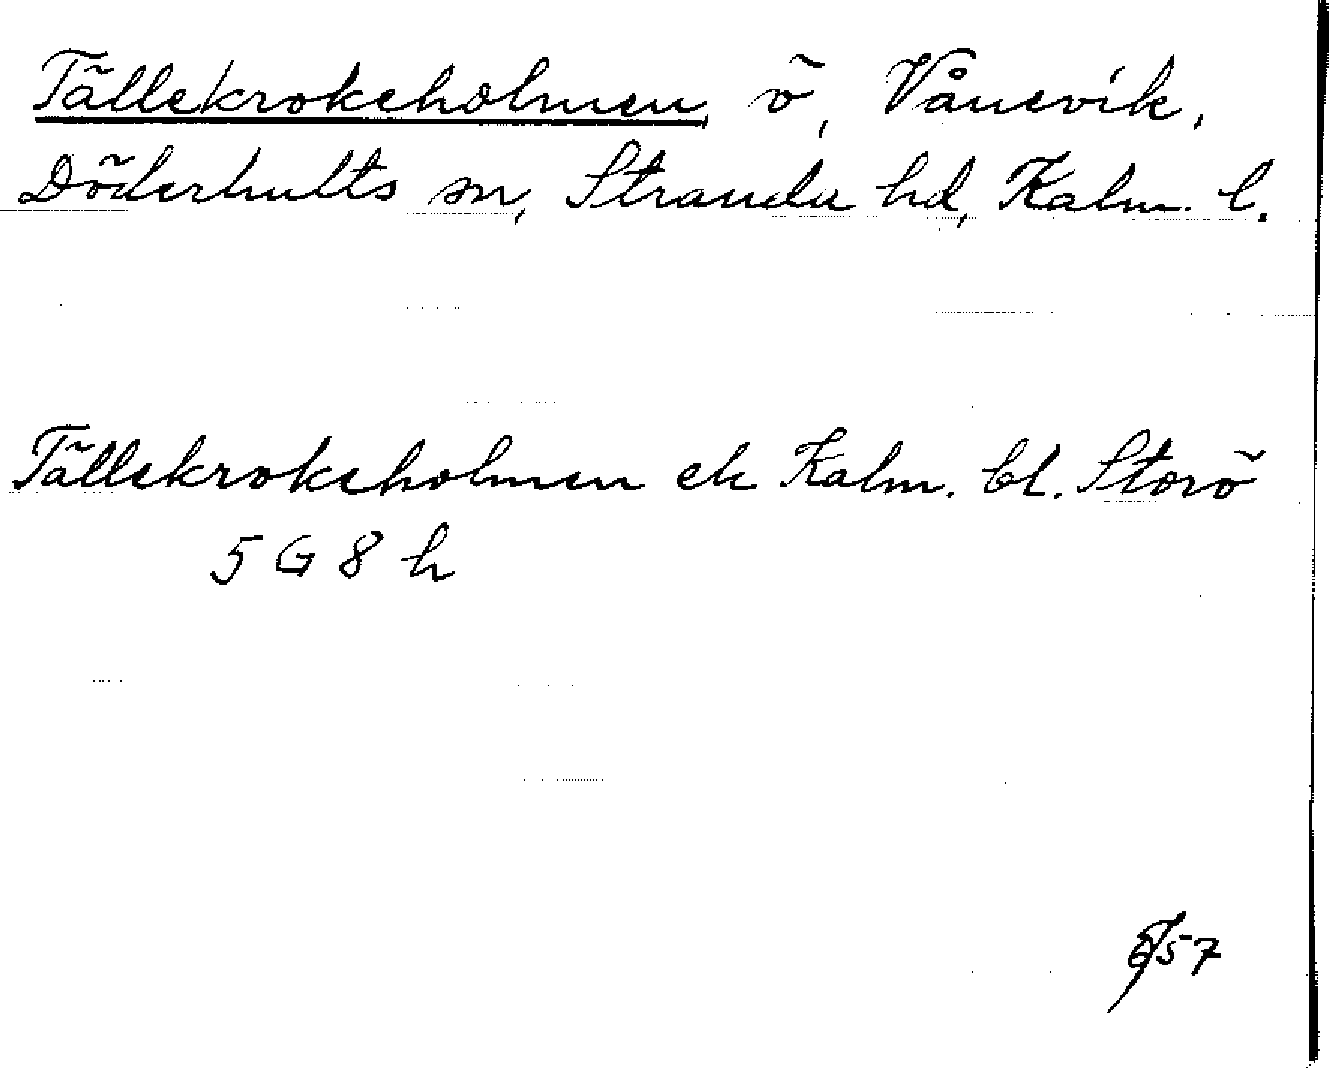 Tällekrokeholmen, ö, Vånevik,
Döderhults sn, Stranda hd, Kalm. l.
Tällekrokeholmen ek Kalm. bl. Storö
5 G 8 h
57